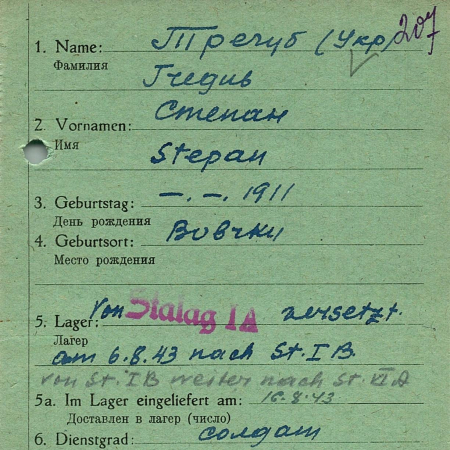 207
1. Name: Трегуб (Укр)
Фамилия
2. Vornamen: Степан
Имя
Stepan
3. Geburtstag: —.—. 1911
День рождения
4. Geburtsort: Вовчки
Место рождения
5. Lager: von Stalag IA versetzt.
Лагер
am 6.8.43 nach St. I B.
von St. I B weiter nach St. VI A
5a. Im Lager eingeliefert am: 16.8.43
Доставлен в лагер (число)
6. Dienstgrad: солдат